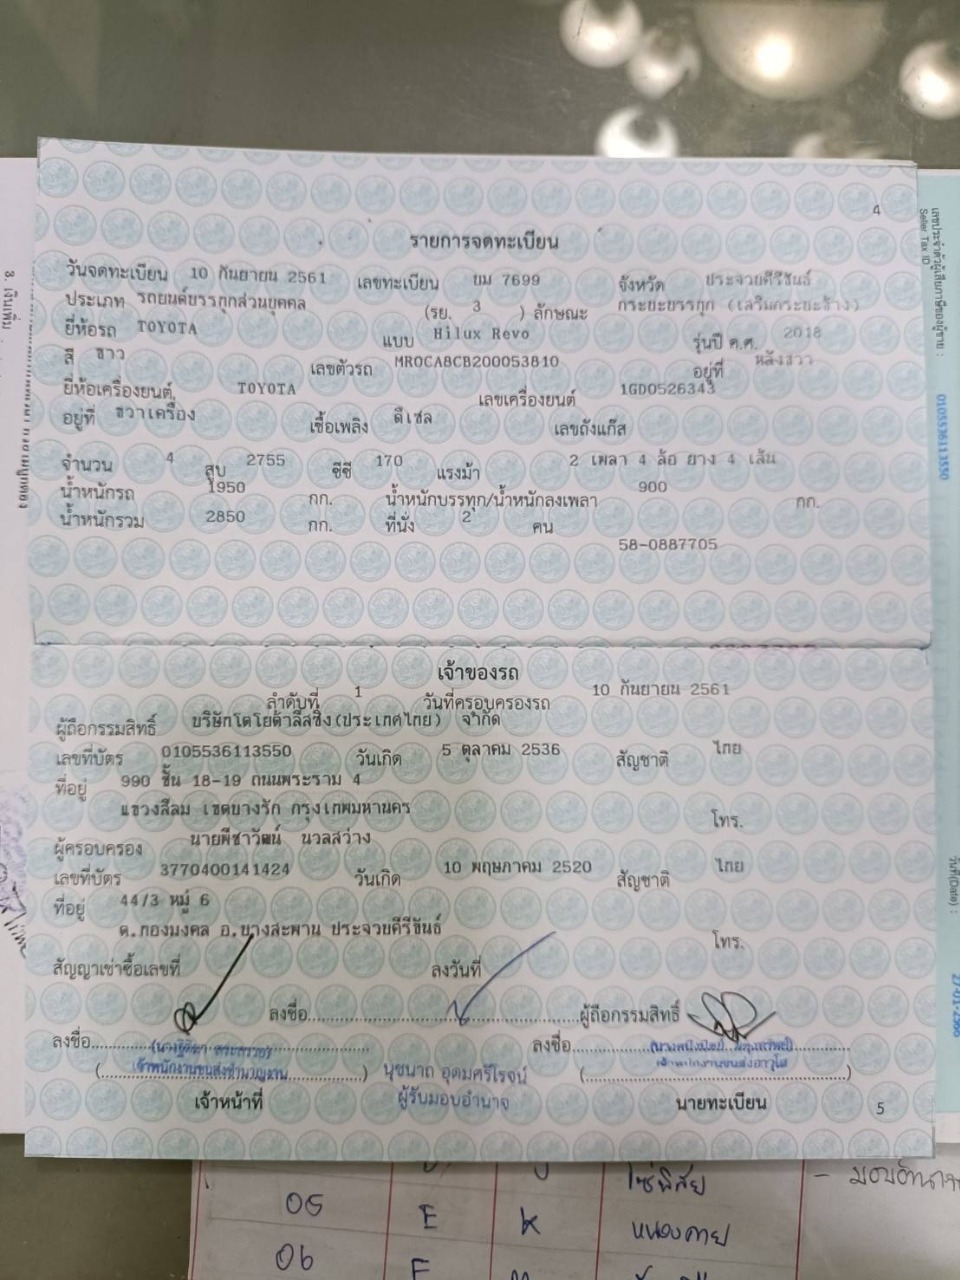 4
รายการจดทะเบียน
วันจดทะเบียน 10 กันยายน 2561 เลขทะเบียน ยม 7699 จังหวัด ประจวบคีรีขันธ์
ประเภท รถยนต์บรรทุกส่วนบุคคล (รย. 3 ) ลักษณะ กระบะบรรทุก (เสริมกระบะข้าง)
ยี่ห้อรถ TOYOTA แบบ Hilux Revo รุ่นปี ค.ศ. 2018
สี ขาว เลขตัวรถ MR0CA8CB200053810 อยู่ที่ หลังขวา
ยี่ห้อเครื่องยนต์ TOYOTA เลขเครื่องยนต์ 1GD0526343
อยู่ที่ ขวาเครื่อง เชื้อเพลิง ดีเซล เลขถังแก๊ส
จำนวน 4 สูบ 2755 ซีซี 170 แรงม้า 2 เพลา 4 ล้อ ยาง 4 เส้น
น้ำหนักรถ 1950 กก. น้ำหนักบรรทุก/น้ำหนักลงเพลา 900 กก.
น้ำหนักรวม 2850 กก. ที่นั่ง 2 คน
58-0887705
เจ้าของรถ
ลำดับที่ 1 วันที่ครอบครองรถ 10 กันยายน 2561
ผู้ถือกรรมสิทธิ์ บริษัทโตโยต้าลีสซิ่ง(ประเทศไทย) จำกัด
เลขที่บัตร 0105536113550 วันเกิด 5 ตุลาคม 2536 สัญชาติ ไทย
ที่อยู่ 990 ชั้น 18-19 ถนนพระราม 4
แขวงสีลม เขตบางรัก กรุงเทพมหานคร โทร.
ผู้ครอบครอง นายพีชาวัฒน์ นวลสว่าง
เลขที่บัตร 3770400141424 วันเกิด 10 พฤษภาคม 2520 สัญชาติ ไทย
ที่อยู่ 44/3 หมู่ 6
ต.ทองมงคล อ.บางสะพาน ประจวบคีรีขันธ์ โทร.
สัญญาเช่าซื้อเลขที่ ลงวันที่
ลงชื่อ ผู้ถือกรรมสิทธิ์
ลงชื่อ ลงชื่อ
เจ้าพนักงานขนส่งชำนาญงาน นุชนาถ อุดมศรีโรจน์ เจ้าพนักงานขนส่งอาวุโส
เจ้าหน้าที่ ผู้รับมอบอำนาจ นายทะเบียน
5
เลขประจำตัวผู้เสียภาษีของผู้ขาย :
Seller Tax ID
0105536113550
วันที่(Date) :
โซ่พิสัย - มอบอำนาจ
05 E K หนองคาย
06